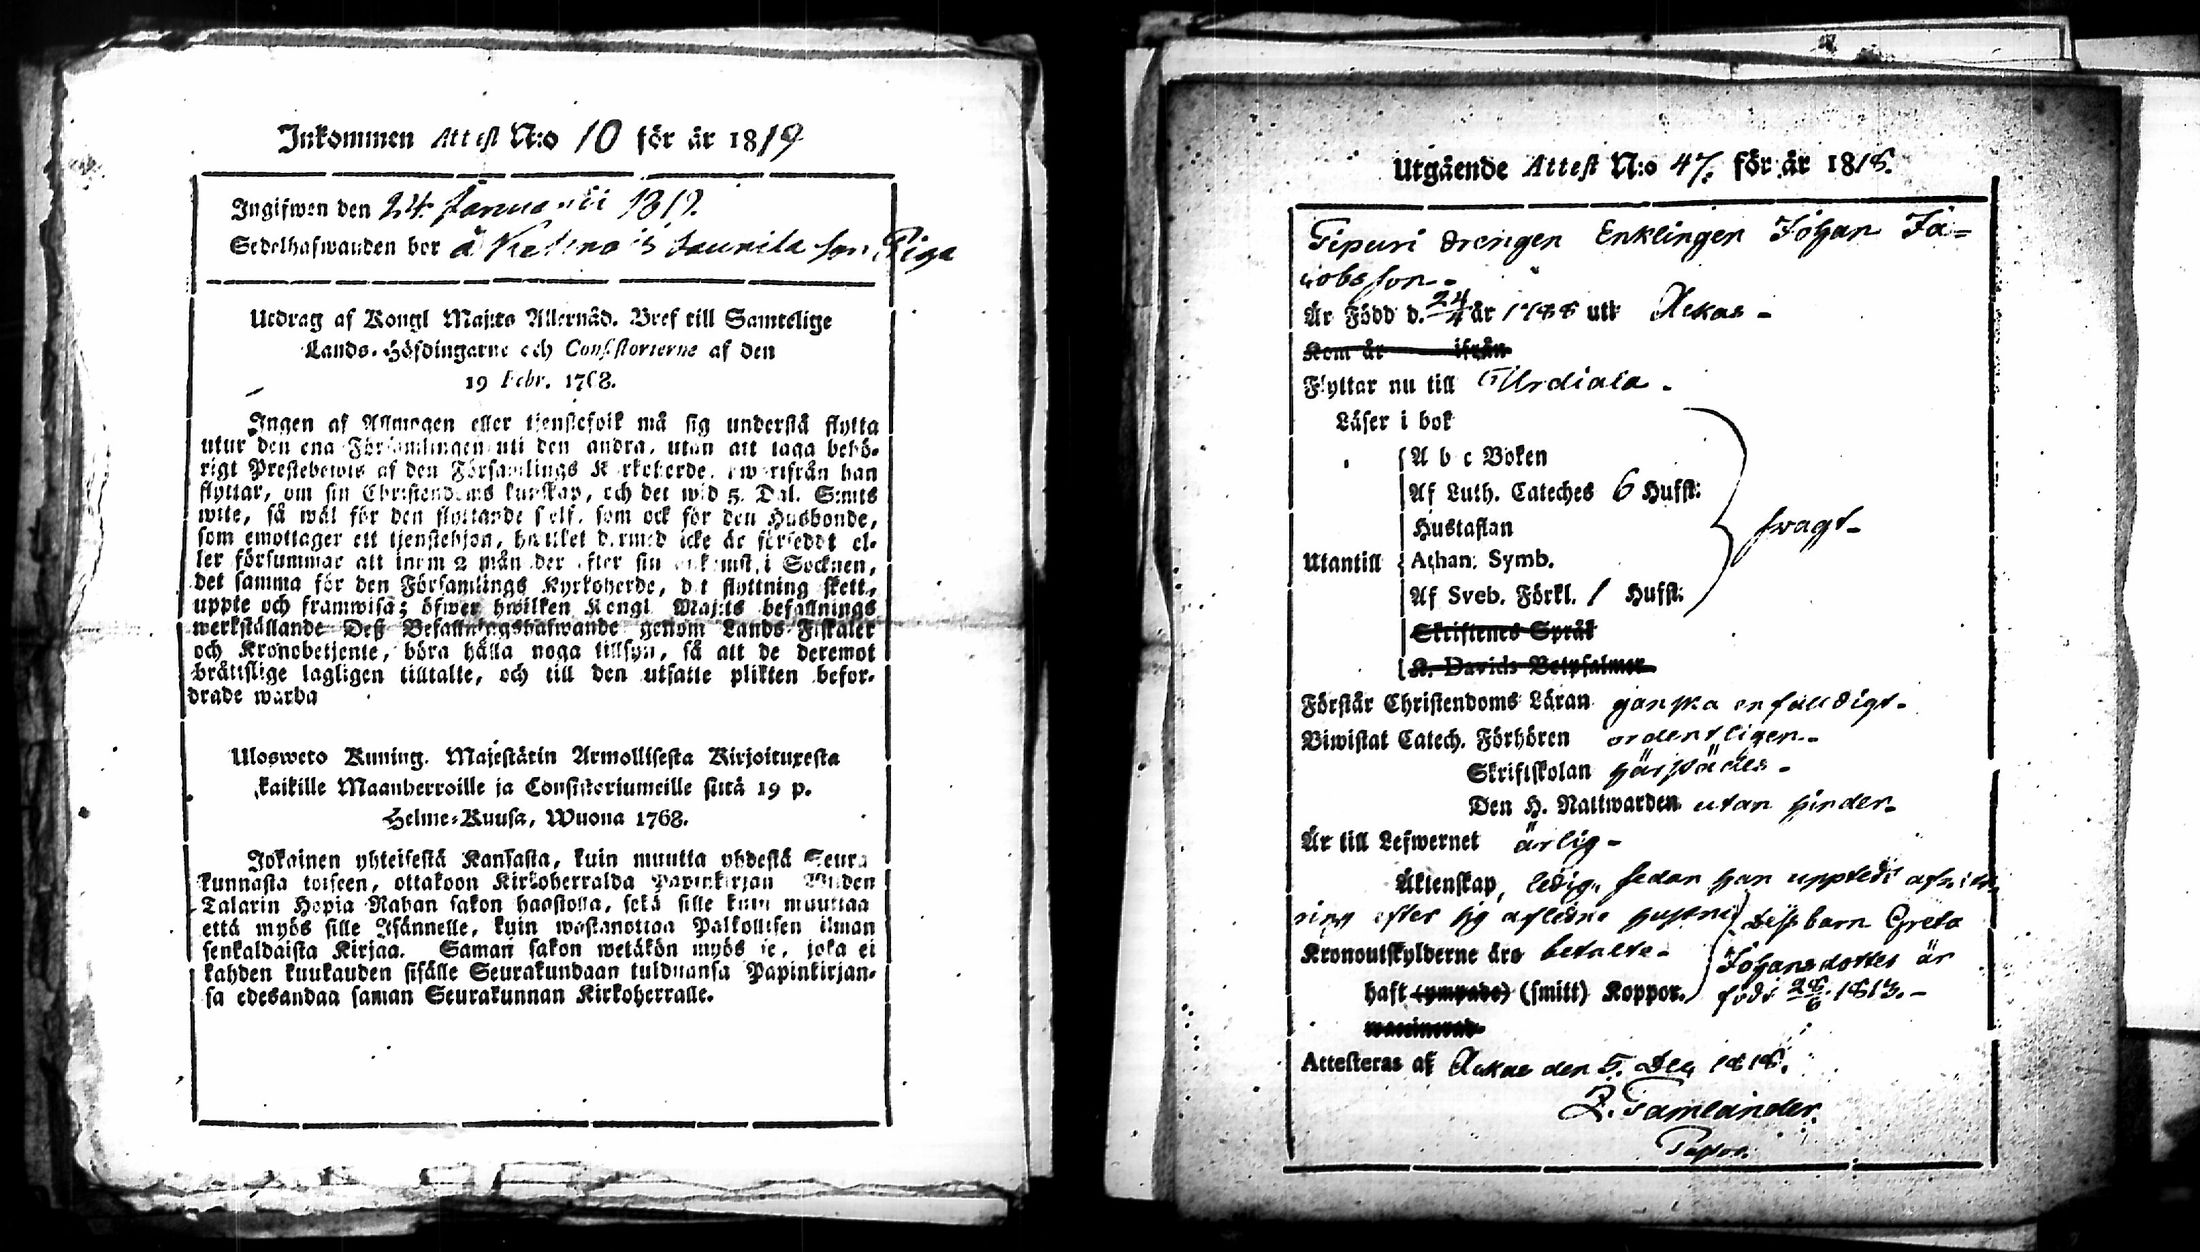 Inkommen Attest N:o 10 för år 1819
Ingifwen den 24 Januarii 1819.
Sedelhafwanden bor å Saurila som Piga
Utdrag af Kongl Maj:ts Allernåd. Bref till Samtelige
Lands-Höfdingarne och Consistorierne af den
19 Febr. 1768.
Ingen af Allmogen eller tjenstefolk må sig understå flytta
utur den ena Församlingen uti den andra, utan att taga behö-
rigt Prestebewis af den Församlings Kyrkoherde, hwarifrån han
flyttar, om sin Christendoms kunskap, och det wid 5. Dal. S:mts
wite, så wäl för den flyttande self, som ock för den Husbonde,
som emottager ett tjenstehjon, hwilket dermed icke är förseddt el-
ler försummar att inom 2 månader efter sin ankomst i Socknen,
det samma för den Församlings Kyrkoherde, dit flyttning skett,
uppte och framwisa; öfwer hwilken Kongl Maj:ts befallnings
werkställande Deß Befallningshafwande genom Lands-Fiskaler
och Kronobetjente, böra hålla noga tillsyn, så att de deremot
bråttslige lagligen tilltalte, och till den utsatte plikten befor-
drade warda
Ulosweto Kuning. Majestätin Armollisesta Kirjoituxesta
kaikille Maanherroille ja Consistoriumeille siitä 19 p.
Helme-Kuusa, Wuona 1768.
Jokainen yhteisestä Kansasta, kuin muutta yhdestä Seura
kunnasta toiseen, ottakoon Kirkoherralda Papinkirjan Wiiden
Talarin Hopia Rahan sakon haastolla, sekä sille kuin muuttaa
että myös sille Isännelle, kuin wastanottaa Palkollisen ilman
senkaldaista Kirjaa. Saman sakon wetäkön myös se, joka ei
kahden kuukauden sisälle Seurakundaan tulduansa Papinkirjan-
sa edesandaa saman Seurakunnan Kirkoherralle.
Utgående Attest N:o 47. för år 1818.
Pipuri drengen Enklingen Johan Ja-
cobsson.-
Är Född d. 24/4 år 1788 uti Ackas -
Kom år ifrån
Flyttar nu till Urdiala -
Läser i bok
A b c Boken
Af Luth. Cateches 6 Hufst:
Hustaflan
Utantill Athan: Symb.
Af Sveb. Förkl. 1 Hufst:
swagt-
Skriftenes Språk
K. Davids Botpsalmer
Förstår Christendoms Läran ganska enfalldigt-
Biwistat Catech. Förhören ordentligen-
Skriftskolan härstädes -
Den H. Nattwarden utan hinder-
Är till Lefwernet ärlig -
Äktenskap, ledig, sedan han upptedt afwitt-
ring efter sig aflidna hustru
Deß barn Greta
Kronoutskylderne äro betalte-
Johansdotter är
haft (ympade) (smitt) Koppor.
född 28/6 1813.-
waccinerad
Attesteras af Ackas den 5. Dec 1818.
Z. Tamlander
Pastor.